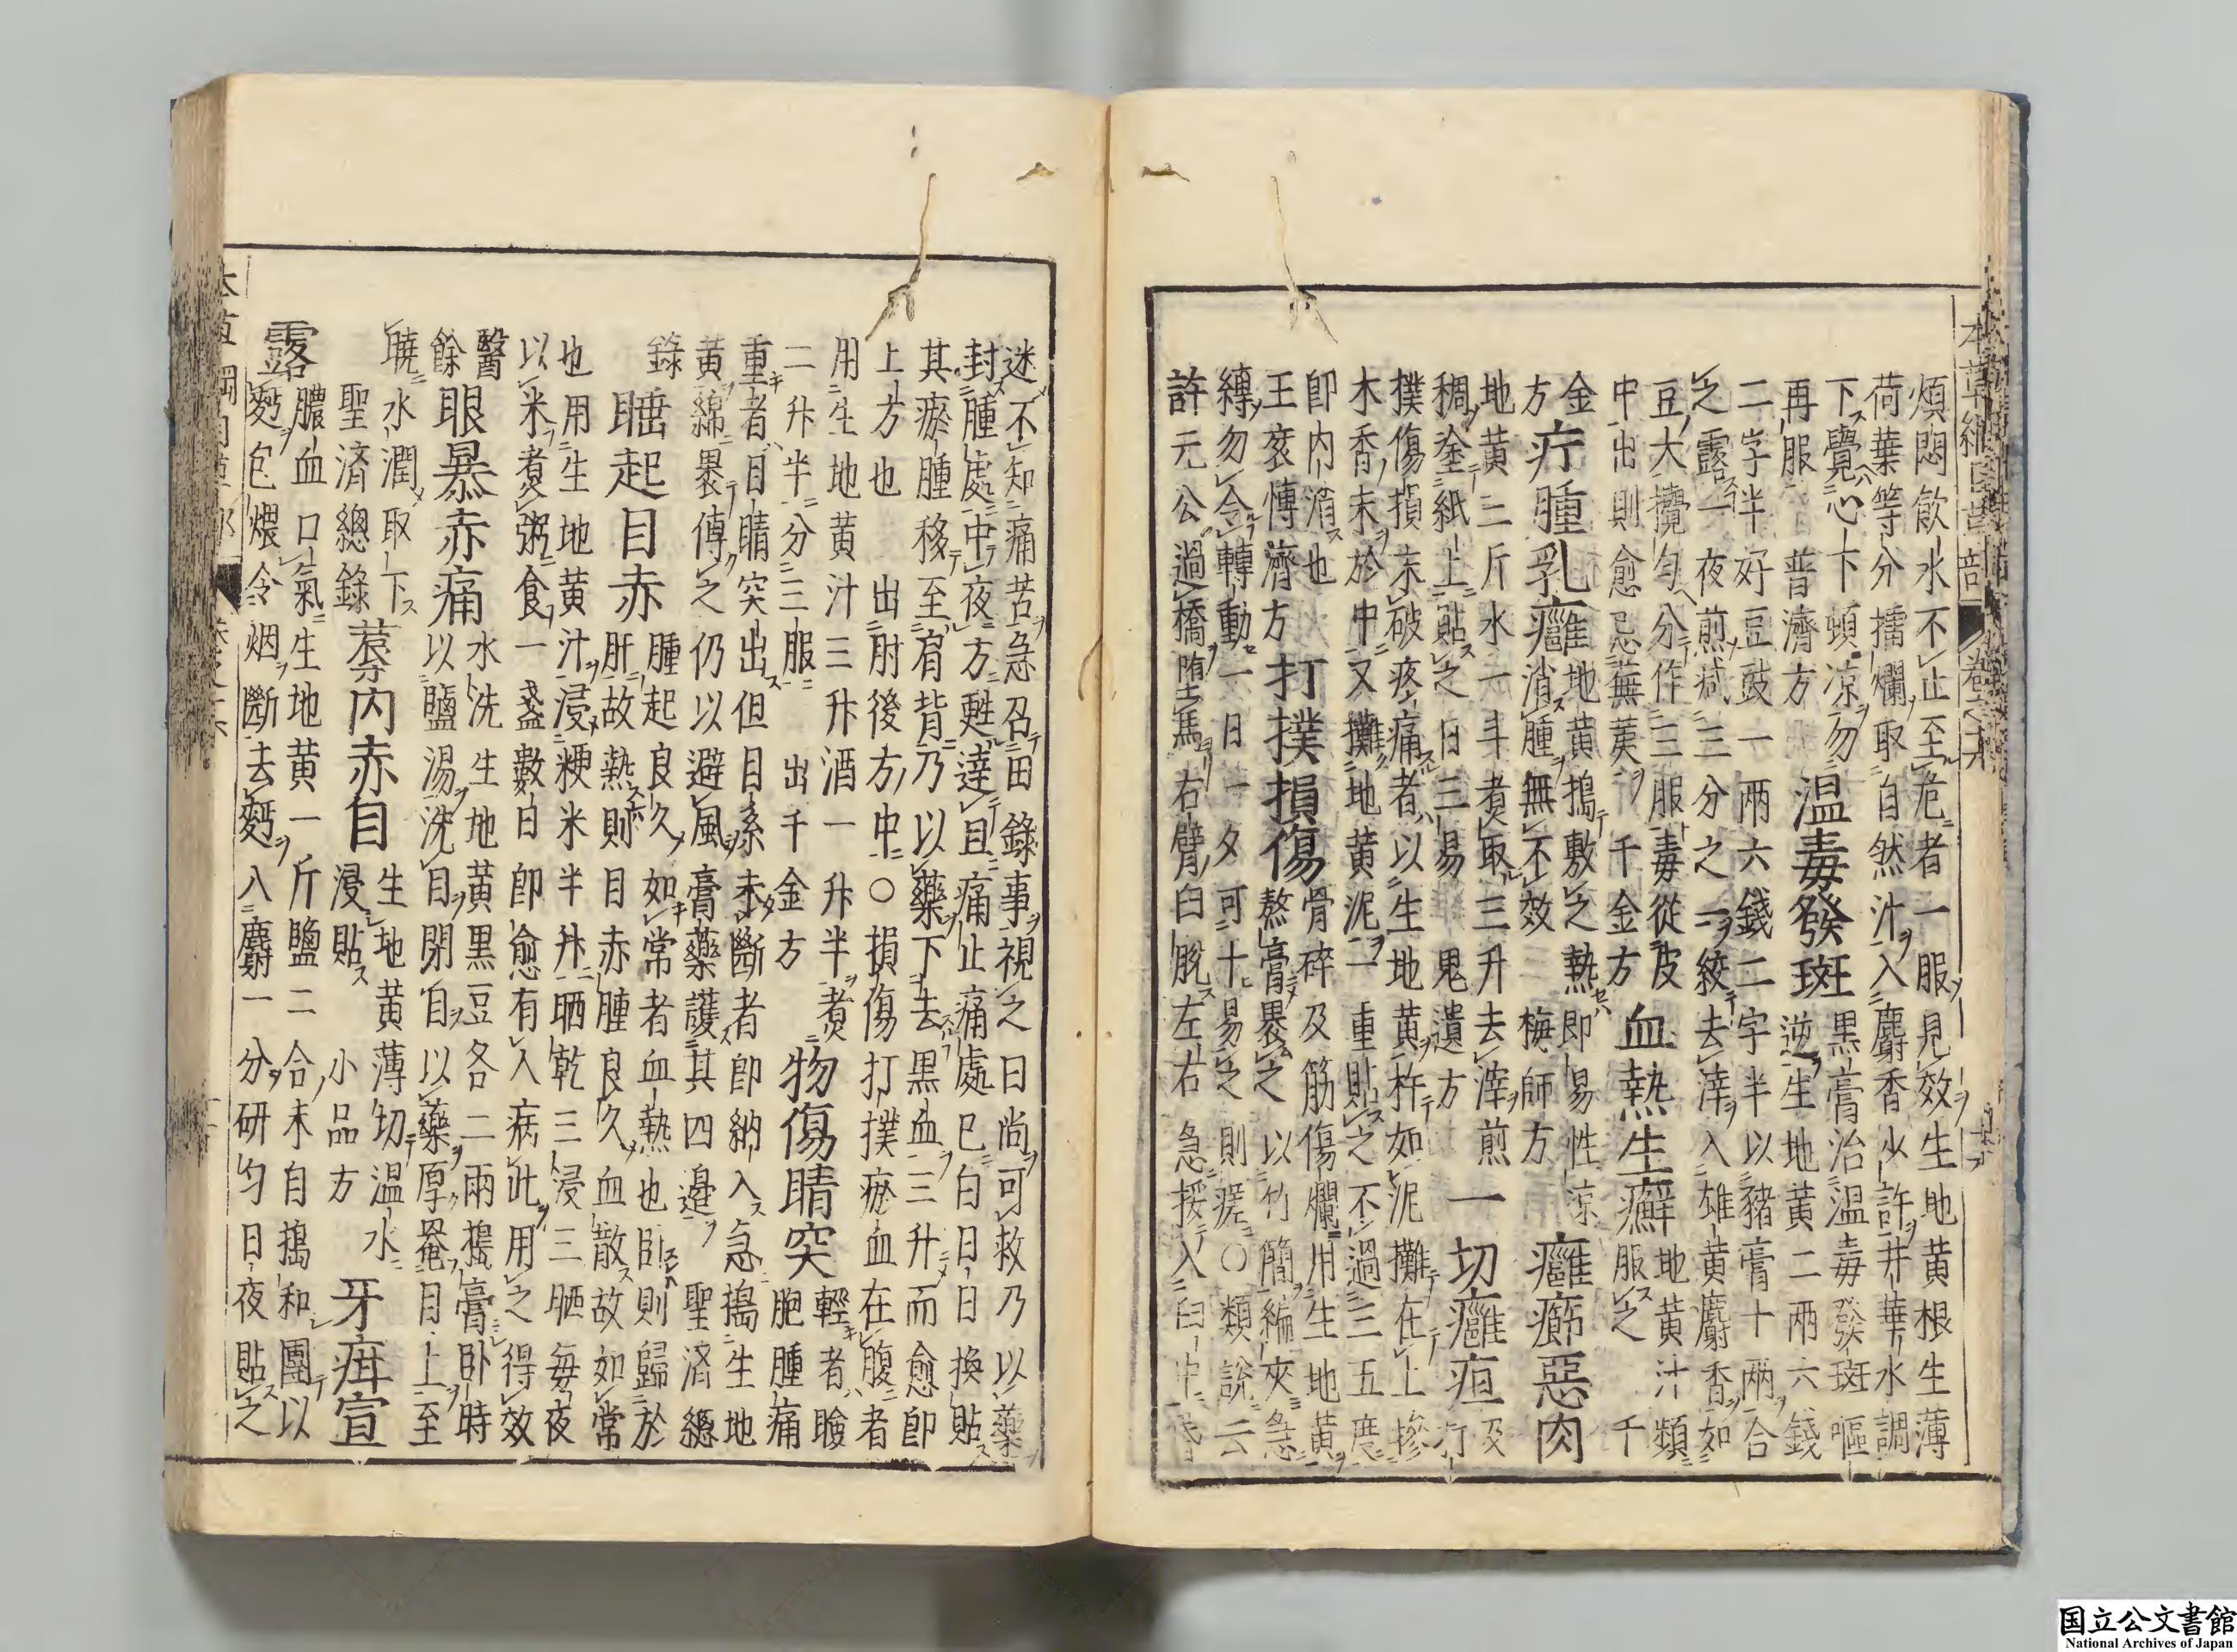 本草綱目草部 卷之十六
煩悶飲水不止至危者一服見效生地黄根生薄
荷葉等分擂爛取自然汁入麝香少許井華水調
下覺心下頓凉勿
再服 普濟方
温毒發斑
黒膏治温毒發斑嘔
逆生地黄二兩六錢
二字半好豆豉一兩六錢二字半以豬膏十兩合
之露一夜煎減三分之一絞去滓入雄黄麝香如
豆大攪勻分作三服毒從皮
中出則愈忌蕪荑 千金方
血熱生癬
地黄汁頻
服之 千
金
方
疔腫乳癰
地黄搗敷之熱即易性凉
消腫無不效 梅師方
癰癤惡肉
地黄三斤水一斗煮取三升去滓煎
稠塗紙上貼之日三易 鬼遺方
一切癰疽
及
打
撲傷損未破疼痛者以生地黄杵如泥攤在上摻
木香末於中又攤地黄泥一重貼之不過三五度
即内消也
王袞博濟方
打撲損傷
骨碎及筋傷爛用生地黄
熬膏褁之以竹簡編夾急
縛勿令轉動一日一夕可十易之則瘥○類說云
許元公過橋墮馬右臂臼脫左右急挼入臼中昏
迷不知痛苦急召田錄事視之曰尚可救乃以藥
封腫處中夜方甦達旦痛止痛處已白日日換貼
其瘀腫移至肩背乃以藥下去黒血三升而愈即
上方也 出肘後方中○損傷打撲瘀血在腹者
用生地黄汁三升酒一升半煮
二升半分三服 出千金方
物傷睛突
輕者瞼
胞腫痛
重者目睛突出但目系未斷者即納入急搗生地
黄綿褁傅之仍以避風膏藥護其四邊 聖済總
錄
睡起目赤
腫起良久如常者血熱也卧則歸於
肝故熱則目赤腫良久血散故如常
也用生地黄汁浸粳米半升晒乾三浸三晒每夜
以米煮粥食一盞數日即愈有人病此用之得效
醫
餘
眼暴赤痛
水洗生地黄黒豆各二兩搗膏卧時
以鹽湯洗目閉目以藥厚罨目上至
曉水潤取下
聖済總錄
蓐内赤目
生地黄薄切温水
浸貼 小品方
牙疳宣
露
膿血口氣生地黄一斤鹽二合末自搗和團以
麪包煨令烟斷去麪入麝一分研勻日夜貼之
国立公文書館
National Archives of Japan